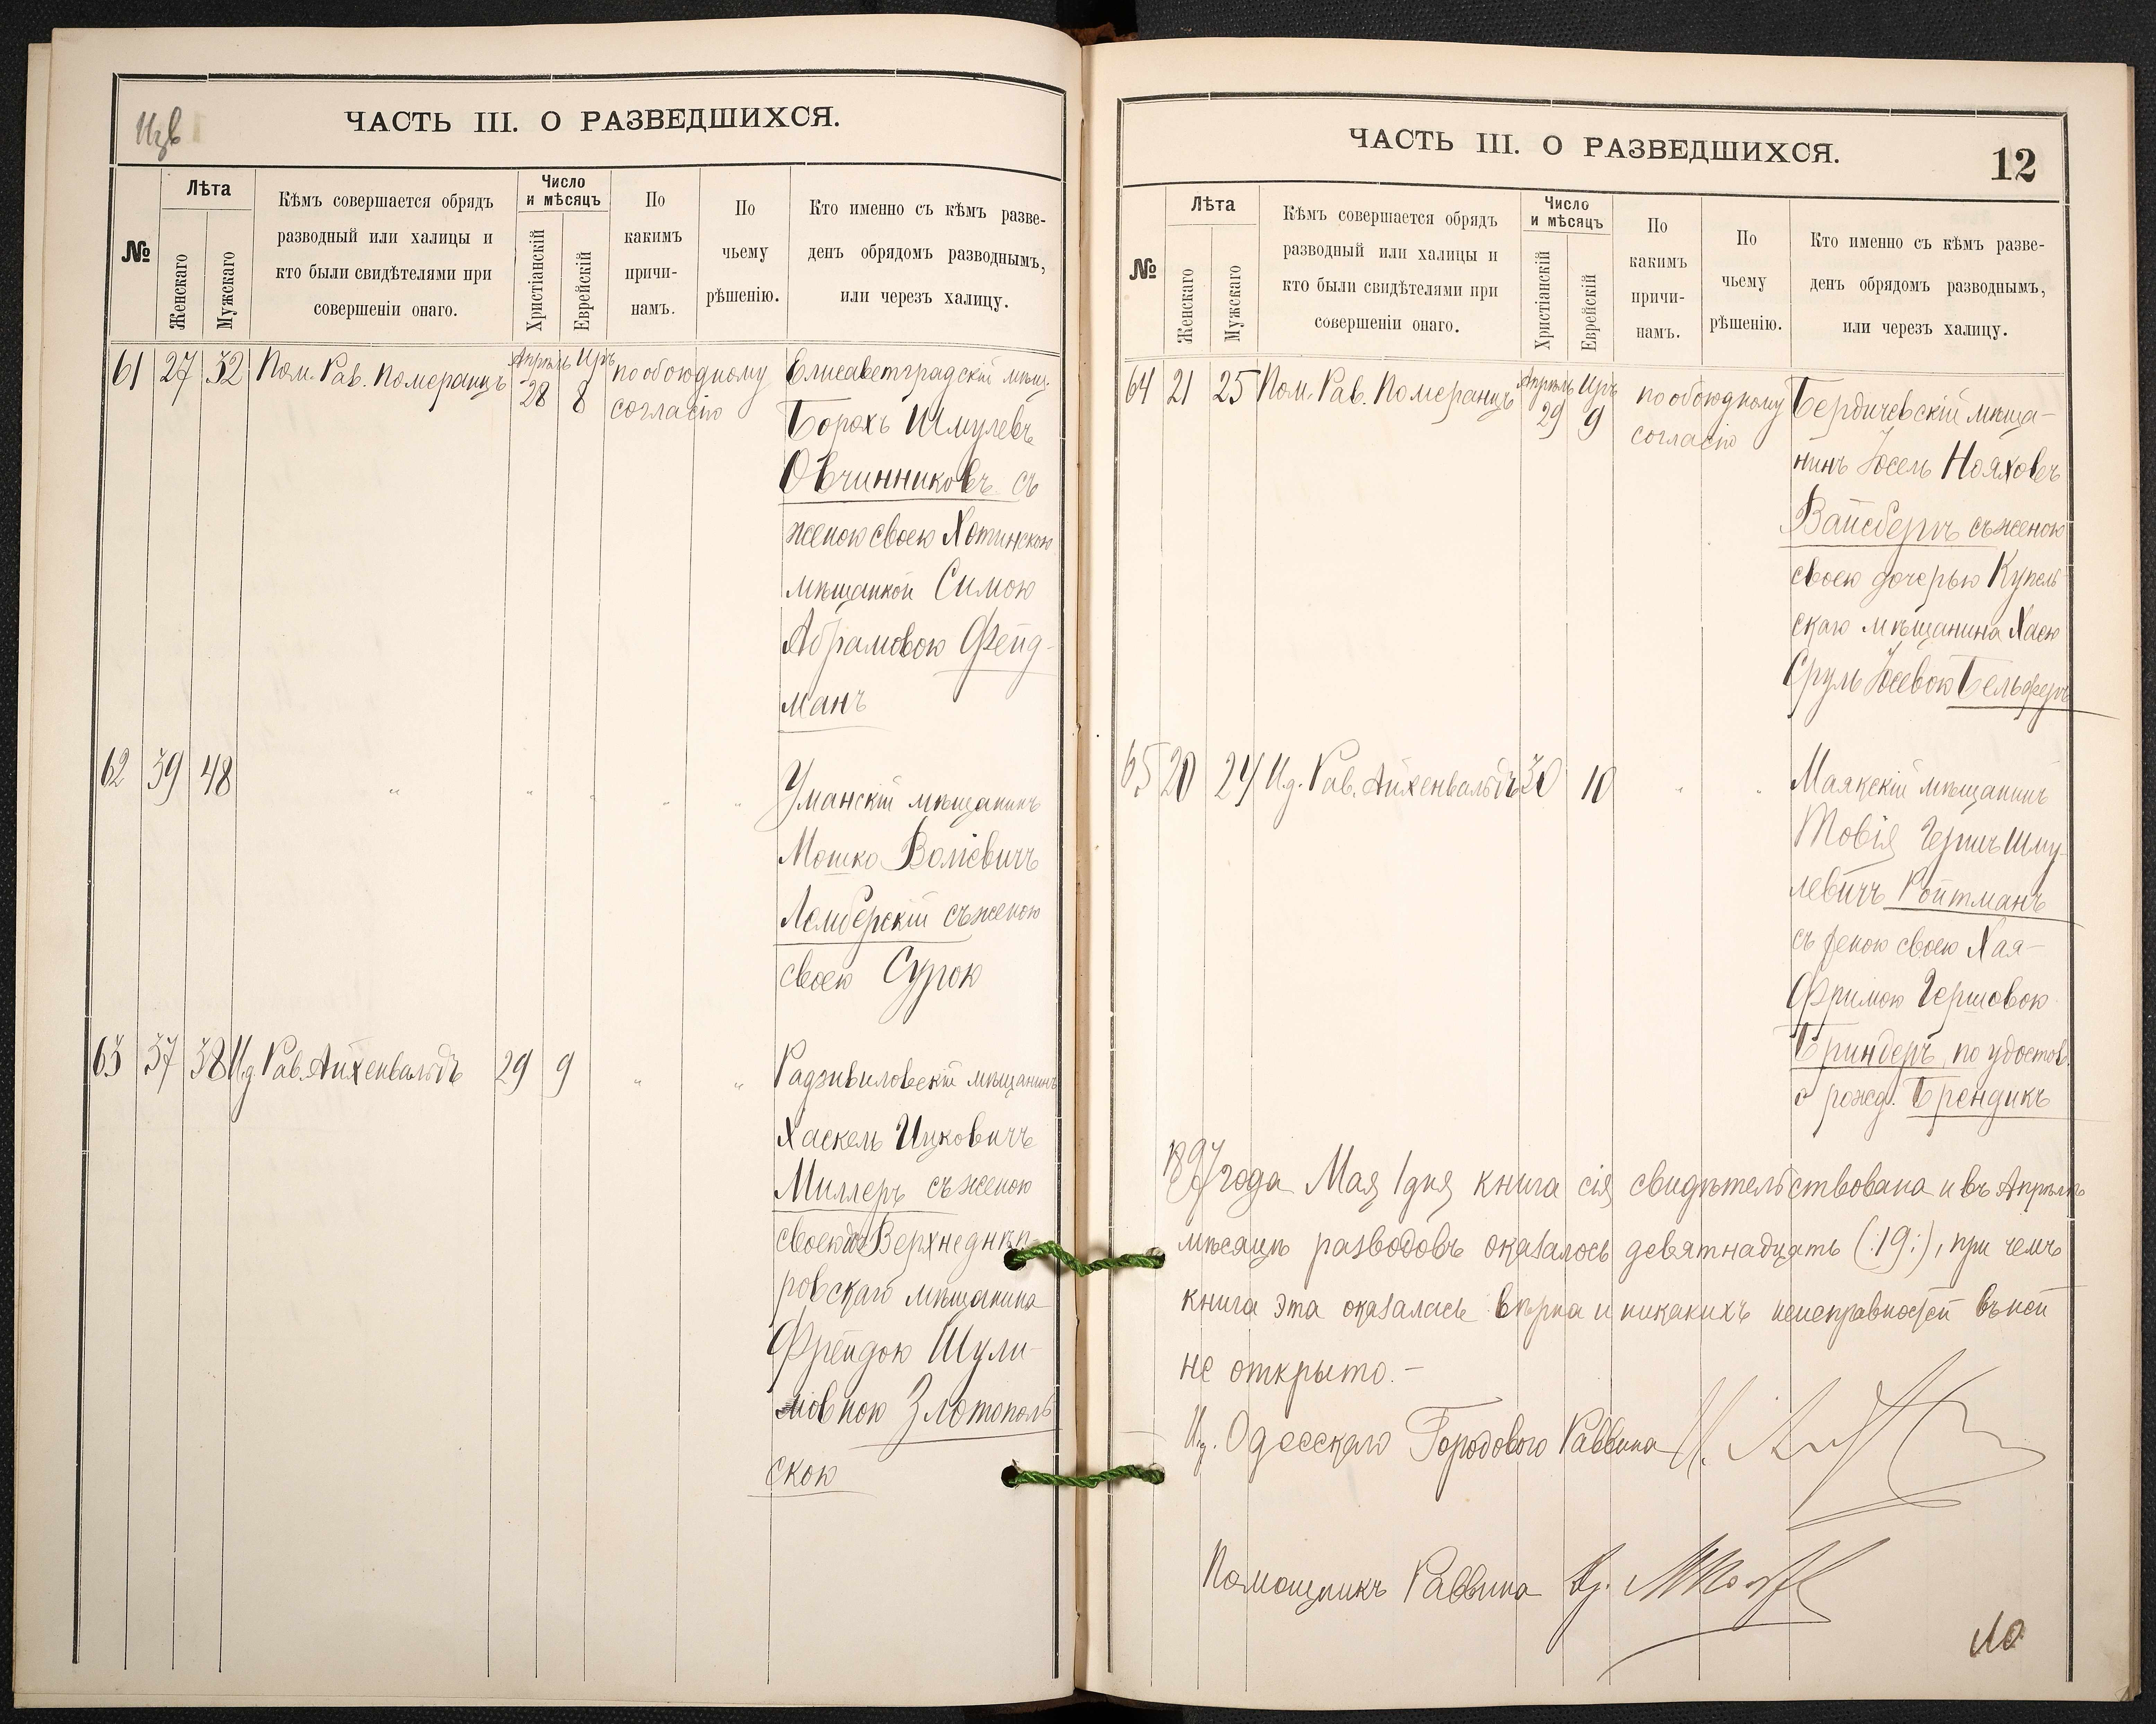 Изв
ЧАСТЬ III. О РАЗВЕДШИХСЯ.
№
Лѣта
Женскаго
Мужскаго
Кѣмъ совершается обрядъ
разводный или халицы и
кто были свидѣтелями при
совершеніи онаго.
Число
и мѣсяцъ
Христіанскій
Еврейскій
По
какимъ
причи-
намъ.
По
чьему
рѣшенію.
Кто именно съ кѣмъ разве-
денъ обрядомъ разводнымъ,
или через халицу.
61 27 32 Пом. Рав. Померанцъ Апрѣль 28 Иръ 8 по обоюдному
согласію
Елисаветградскій мѣщ.
Борохъ Шмулевъ
Овчинниковъ съ
женою своею Хотинскою
мѣщанкой Симою
Абрамовою Фейд-
манъ
62 39 48 " " " " "
Уманскій мѣщанинъ
Мошко Волковичъ
Лемберскій съ женою
своею Сурою
63 37 38 И.д. Рав. Айхенвальдъ 29 9 " "
Радзивиловскій мѣщанинъ
Хаскель Ицковичъ
Миллеръ съ женою
своею Верхнеднѣп-
ровскаго мѣщанина
Фрейдою Шули-
мовною Злотополь-
скою
ЧАСТЬ III. О РАЗВЕДШИХСЯ.
12
№
Лѣта
Женскаго
Мужскаго
Кѣмъ совершается обрядъ
разводный или халицы и
кто были свидѣтелями при
совершеніи онаго.
Число
и мѣсяцъ
Христіанскій
Еврейскій
По
какимъ
причи-
намъ.
По
чьему
рѣшенію.
Кто именно съ кѣмъ разве-
денъ обрядомъ разводнымъ,
или черезъ халицу.
64 21 25 Пом. Рав. Померанцъ Апрѣль 29 Иръ 9 по обоюдному
согласію
Бердичевскій мѣща-
нинъ Іосель Нояховъ
Вайсбергъ съ женою
своею дочерью Купель-
скаго мѣщанина Хаею
Сруль Іосевою Бельферъ
65 20 24 И.д. Рав. Айхенвальдъ 30 10 " "
Маякскій мѣщанинъ
Товія Гершъ Шму-
левичъ Ройтманъ
съ женою своею Хая-
Фримою Гершовою
Бриндеръ, по удостов.
о рожд. Брендикъ
1897 года Мая 1 дня книга сія свидѣтельствована и въ Апрѣлѣ
мѣсяцѣ разводовъ оказалось девятнадцать (:19:), при чемъ
книга эта оказалась вѣрна и никакихъ неисправностей въ ней
не открыто.-
И.д. Одесскаго Городового Раввина
Помощникъ Раввина